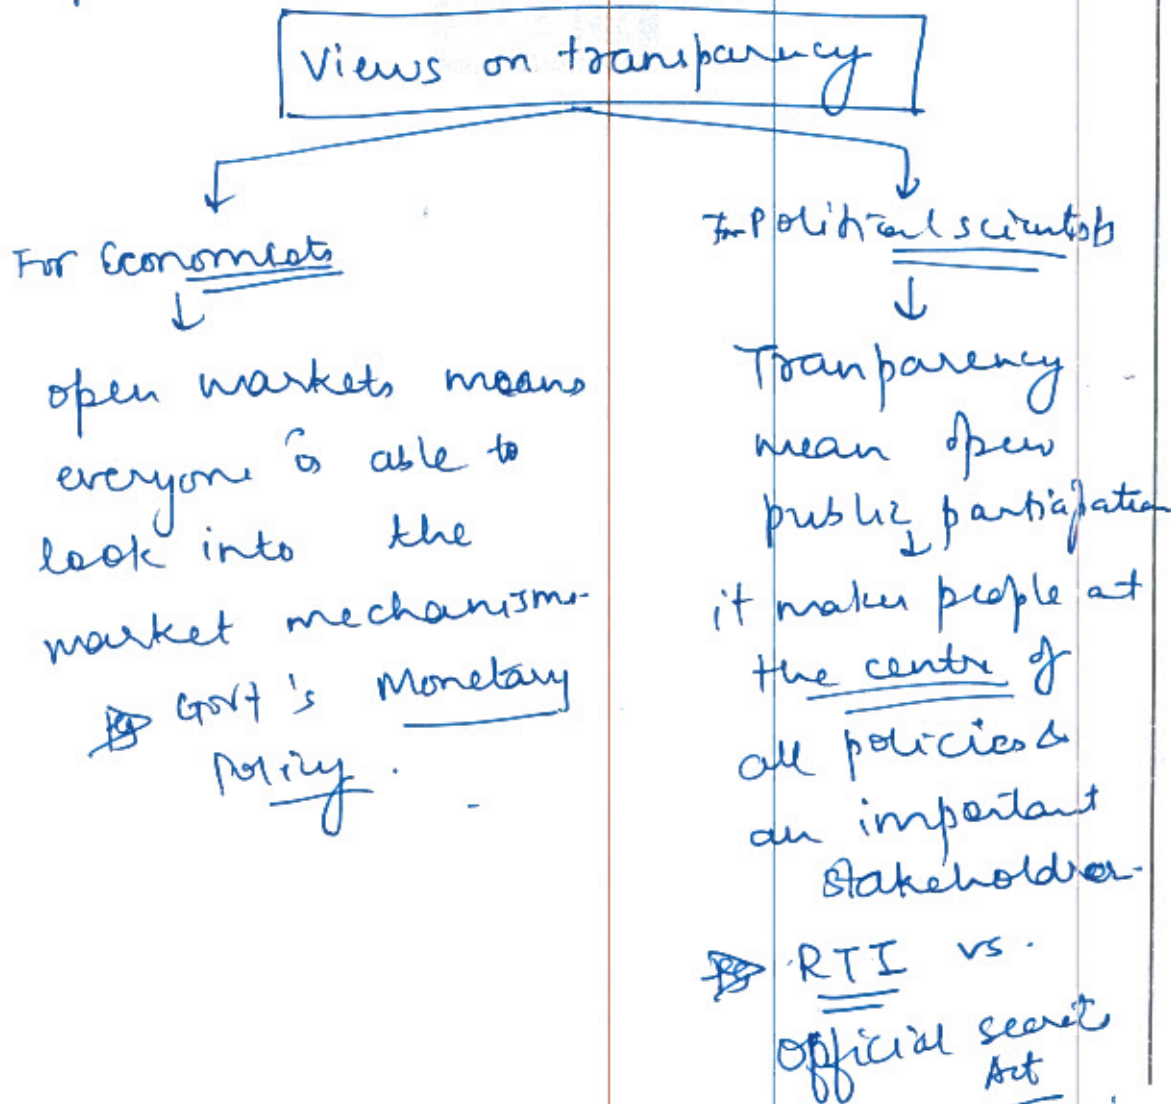 Views on transparency
For Economists
open markets means
everyone is able to
look into the
market mechanism.
Eg Govt's Monetary
Policy.
For Political scientists
Tranparency
mean open
public participation
it makes people at
the centre of
all policies &
an important
stakeholder.
Eg RTI vs.
Official secrets
Act